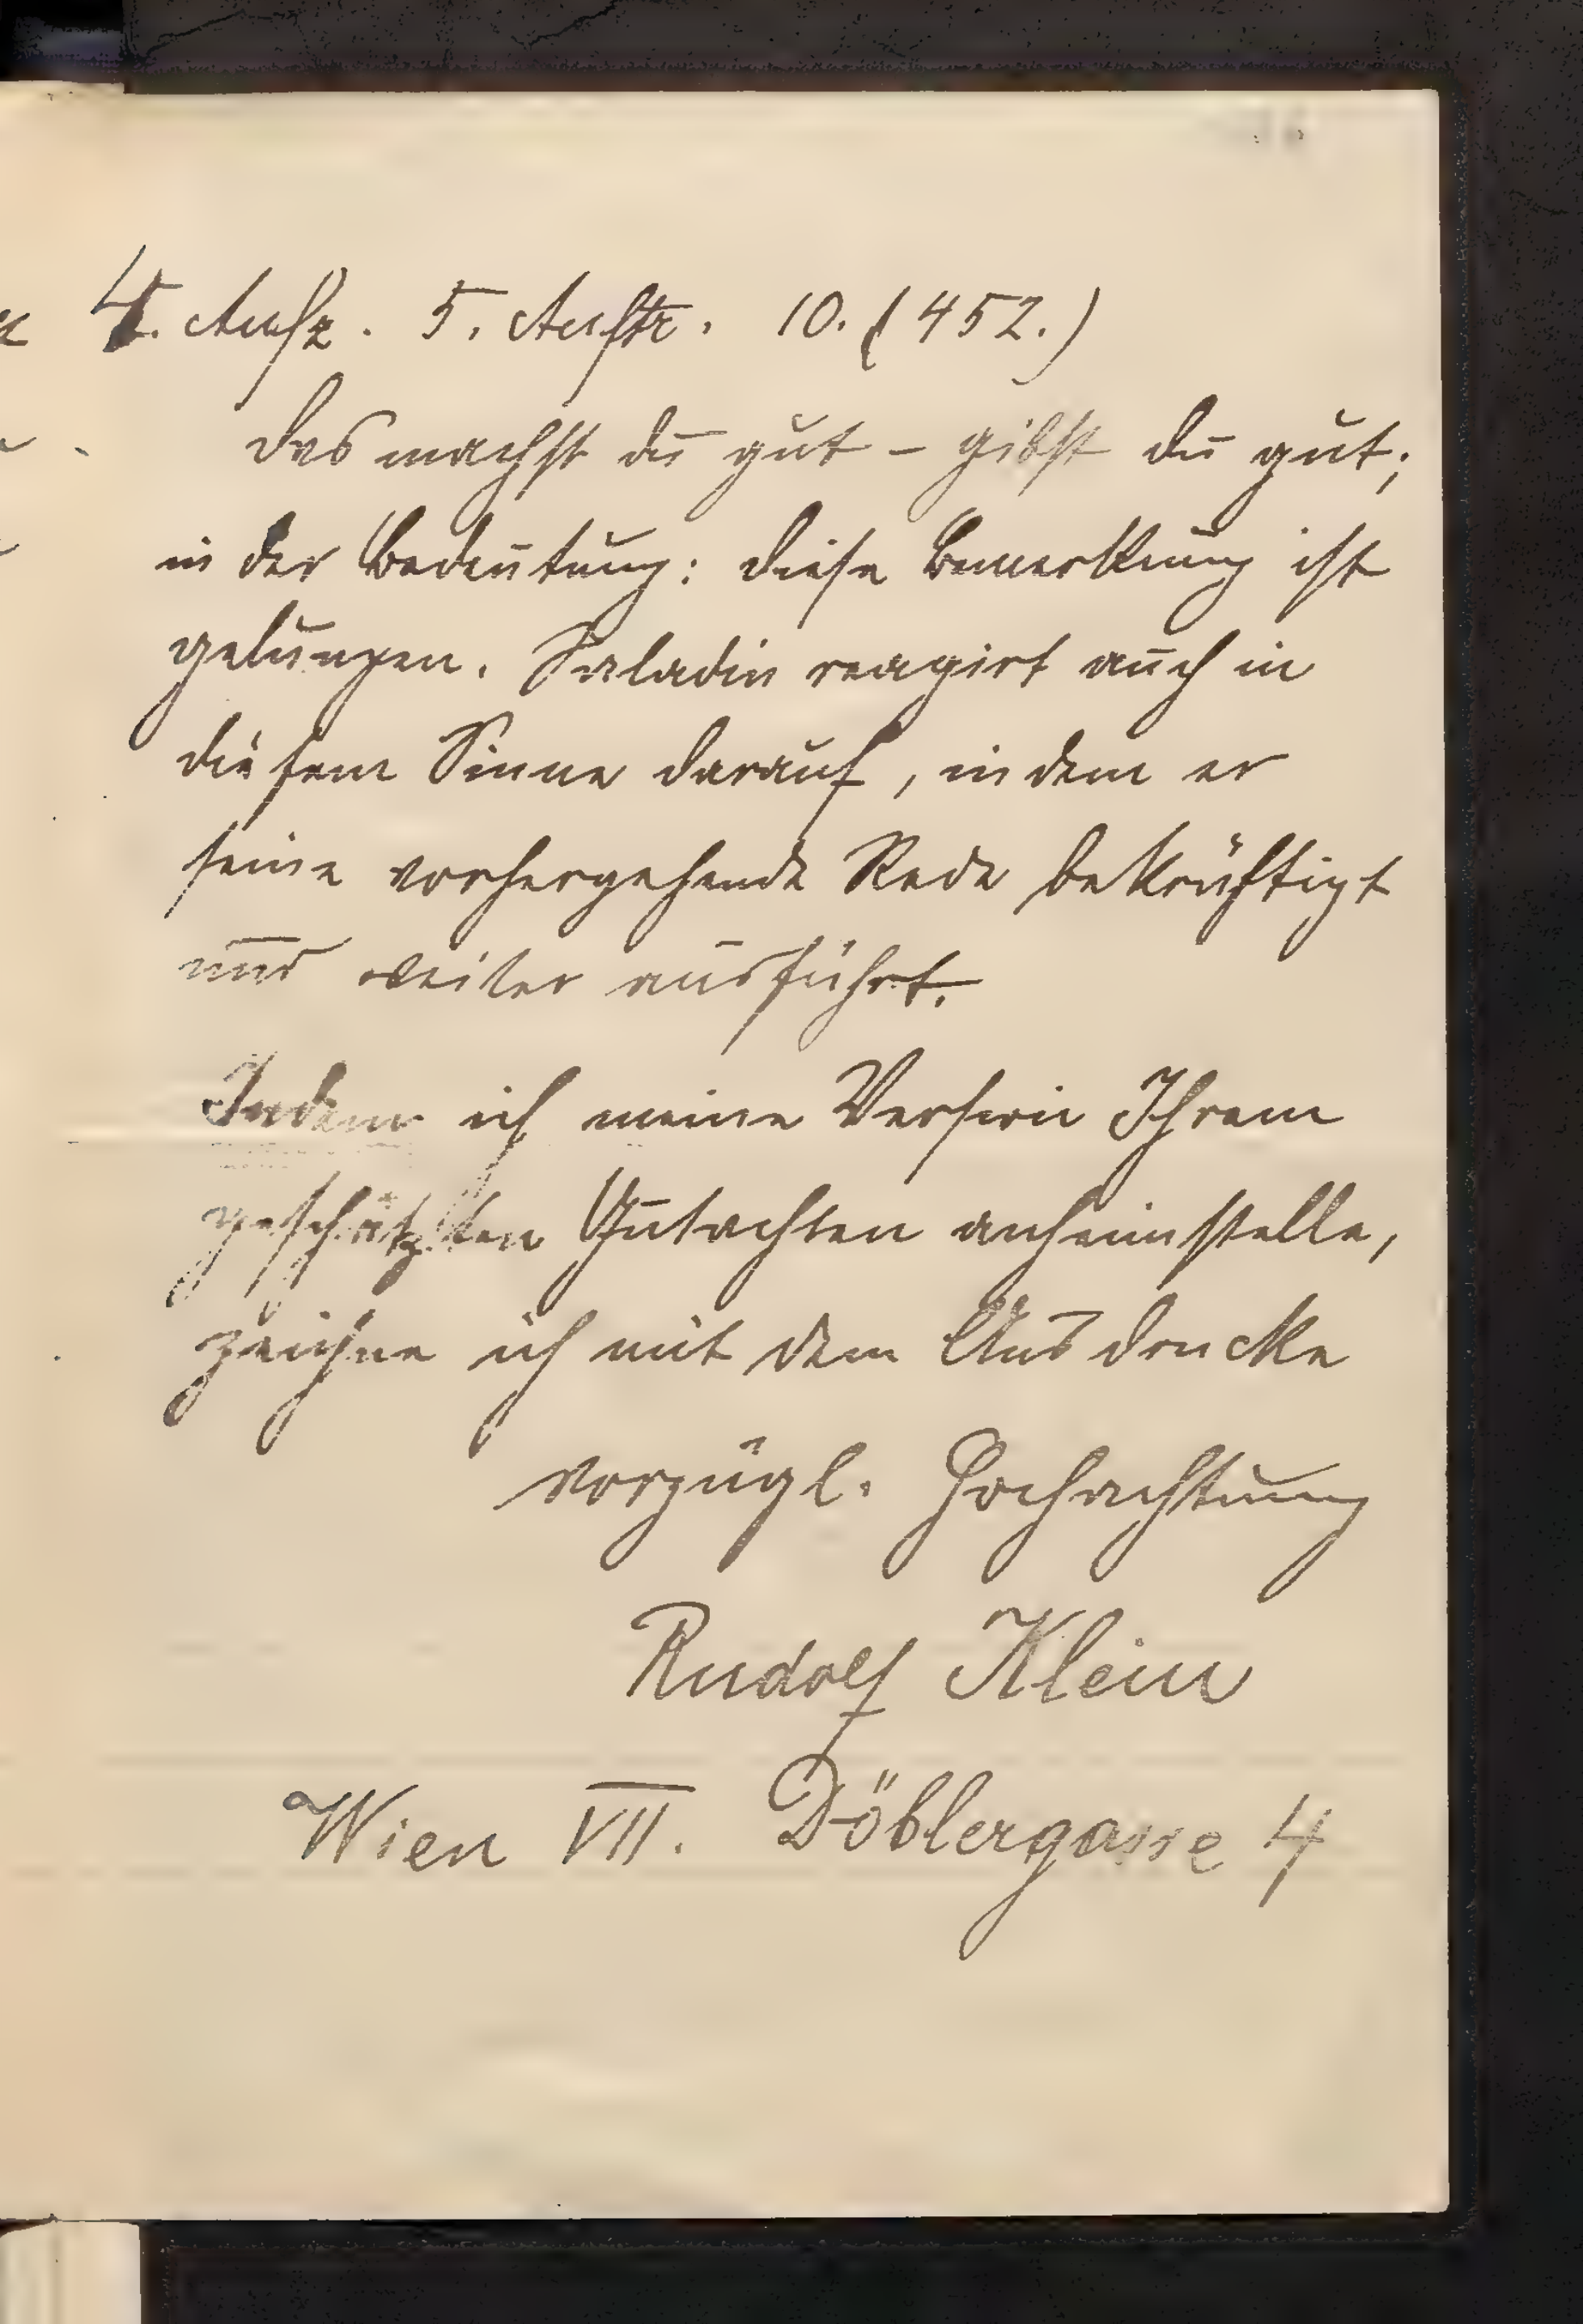 4. Aufz. 5. Auftr. 10. (452.)
Das machst du gut – gibst du gut;
in der Bedeutung: diese Bemerkung ist
gelungen. Saladin reagirt auch in
diesem Sinne darauf, indem er
seine vorhergehende Rede bekräftigt
und weiter ausführt.
Indem ich meine Version Ihrem
geschätzten Gutachten anheimstelle,
zeichne ich mit dem Ausdrucke
vorzügl. Hochachtung
Rudolf Klein
Wien VII. Döblergasse 4